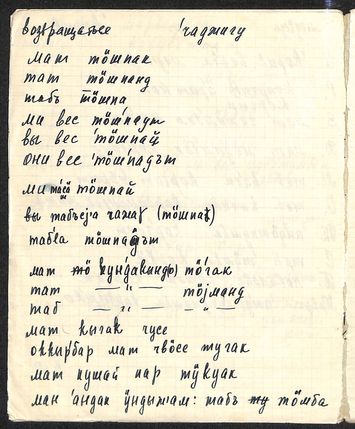 возвращаться 'чаджигу
мат тӧшпак
тат тӧшпанд
табъ тӧшпа
ми вес тӧшпаут
вы вес тӧшпай
они все тӧшпадът
ми тӧшпай
вы табъеја чажаӷ (тӧшпа)
табла тӧшпадът
мат кунд'акындо) тӧгак
тат — " — тӧјманд
таб — " — — " —
мат кыгак чусе
оккырбар мат чвӧсе тугак
мат кушай нар тӱкуак
ман 'андак ӱндыжам: табъ тӧмба